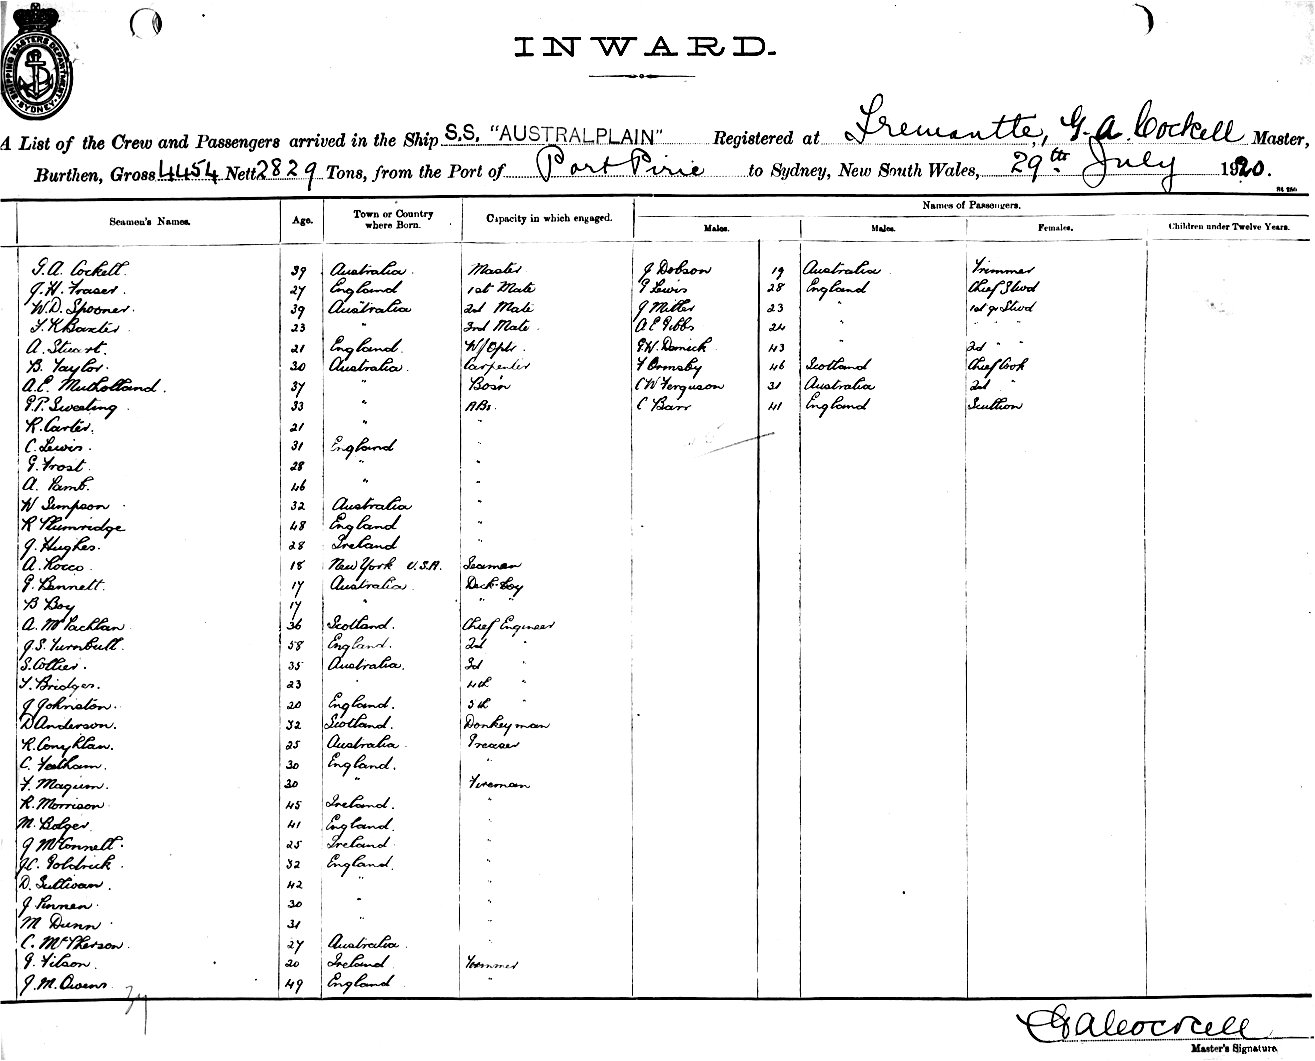 SHIPPING MASTERS DEPARTMENT SYDNEY
INWARD.
A List of the Crew and Passengers arrived in the Ship S.S. "AUSTRALPLAIN" Registered at Fremantle, G. A. Cockell Master,
Burthen, Gross 4454 Nett 2829 Tons, from the Port of Port Pirie to Sydney, New South Wales, 29th July 1920.
Seamen's Names. Age. Town or Country where Born. Capacity in which engaged. Names of Passengers.
Males. Males. Females. Children under Twelve Years.
G.A. Cockell. 39 Australia. Master J Dobson 19 Australia Trimmer
J.H. Fraser. 27 England 1st Mate G Lewis 28 England Chief Stwd
W.D. Spooner. 39 Australia 2nd Mate J Miller 23 " 1st gr Stwd
T.K Baxter. 23 " 3rd Mate. A E Gibbs 24 " " "
A. Stuart. 21 England. W/Optr G.W. 43 " 2nd " "
B. Taylor. 30 Australia. Carpenter F Ormsby 46 Scotland Chief Cook
A.E. Mulholland. 37 " Bosn C W Ferguson 31 Australia 2nd "
G.P. Sweeting. 33 " ABs. C Barr 41 England Scullion
R. Carter. 21 " "
C. Lewis. 31 England "
G. Frost. 28 " "
A. Lamb. 46 " "
W Simpson 32 Australia "
R Plumridge 48 England "
J. Hughes. 28 Ireland "
A. Rocco. 18 New York U.S.A. Seaman
G. Bennett. 17 Australia Deck-boy
B Boy 17 " " "
A. McLachlan 36 Scotland. Chief Engineer
J.S. Turnbull. 58 England. 2nd "
S. Collier. 35 Australia. 3rd "
T. Bridges. 23 " 4th "
J Johnston. 20 England. 5th "
D Anderson. 32 Scotland. Donkeyman
R. Conghlan. 25 Australia. Greaser
C. Feltham. 30 England. "
F. Maguin. 30 " Fireman
R. Morrison. 45 Ireland. "
M. Bolger. 41 England. "
J McConnell. 25 Ireland. "
J.C. Goldrick. 32 England. "
D. Sullivan. 42 " "
J 30 " "
M Dunn. 31 " "
C. McPherson. 27 Australia. "
G. Filson. 20 Ireland. Trimmer
J.M. Owens. 49 England "
37
G A Cockell
Master's Signature.